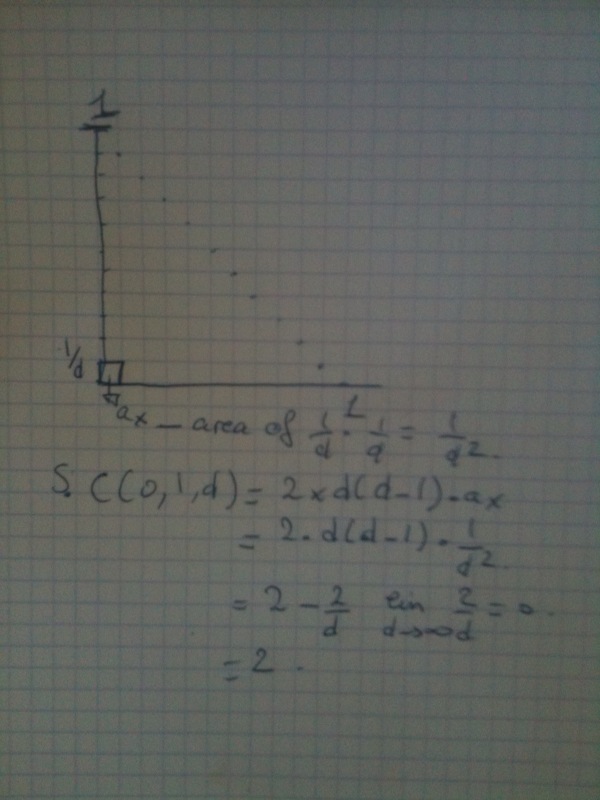 1
1/d
1
ax - area of 1/d · 1/d = 1/d².
S. C(0,1,d) = 2 × d(d-1) · ax
= 2 · d(d-1) · 1/d².
= 2 - 2/d lim d→∞ 2/d = 0.
= 2.